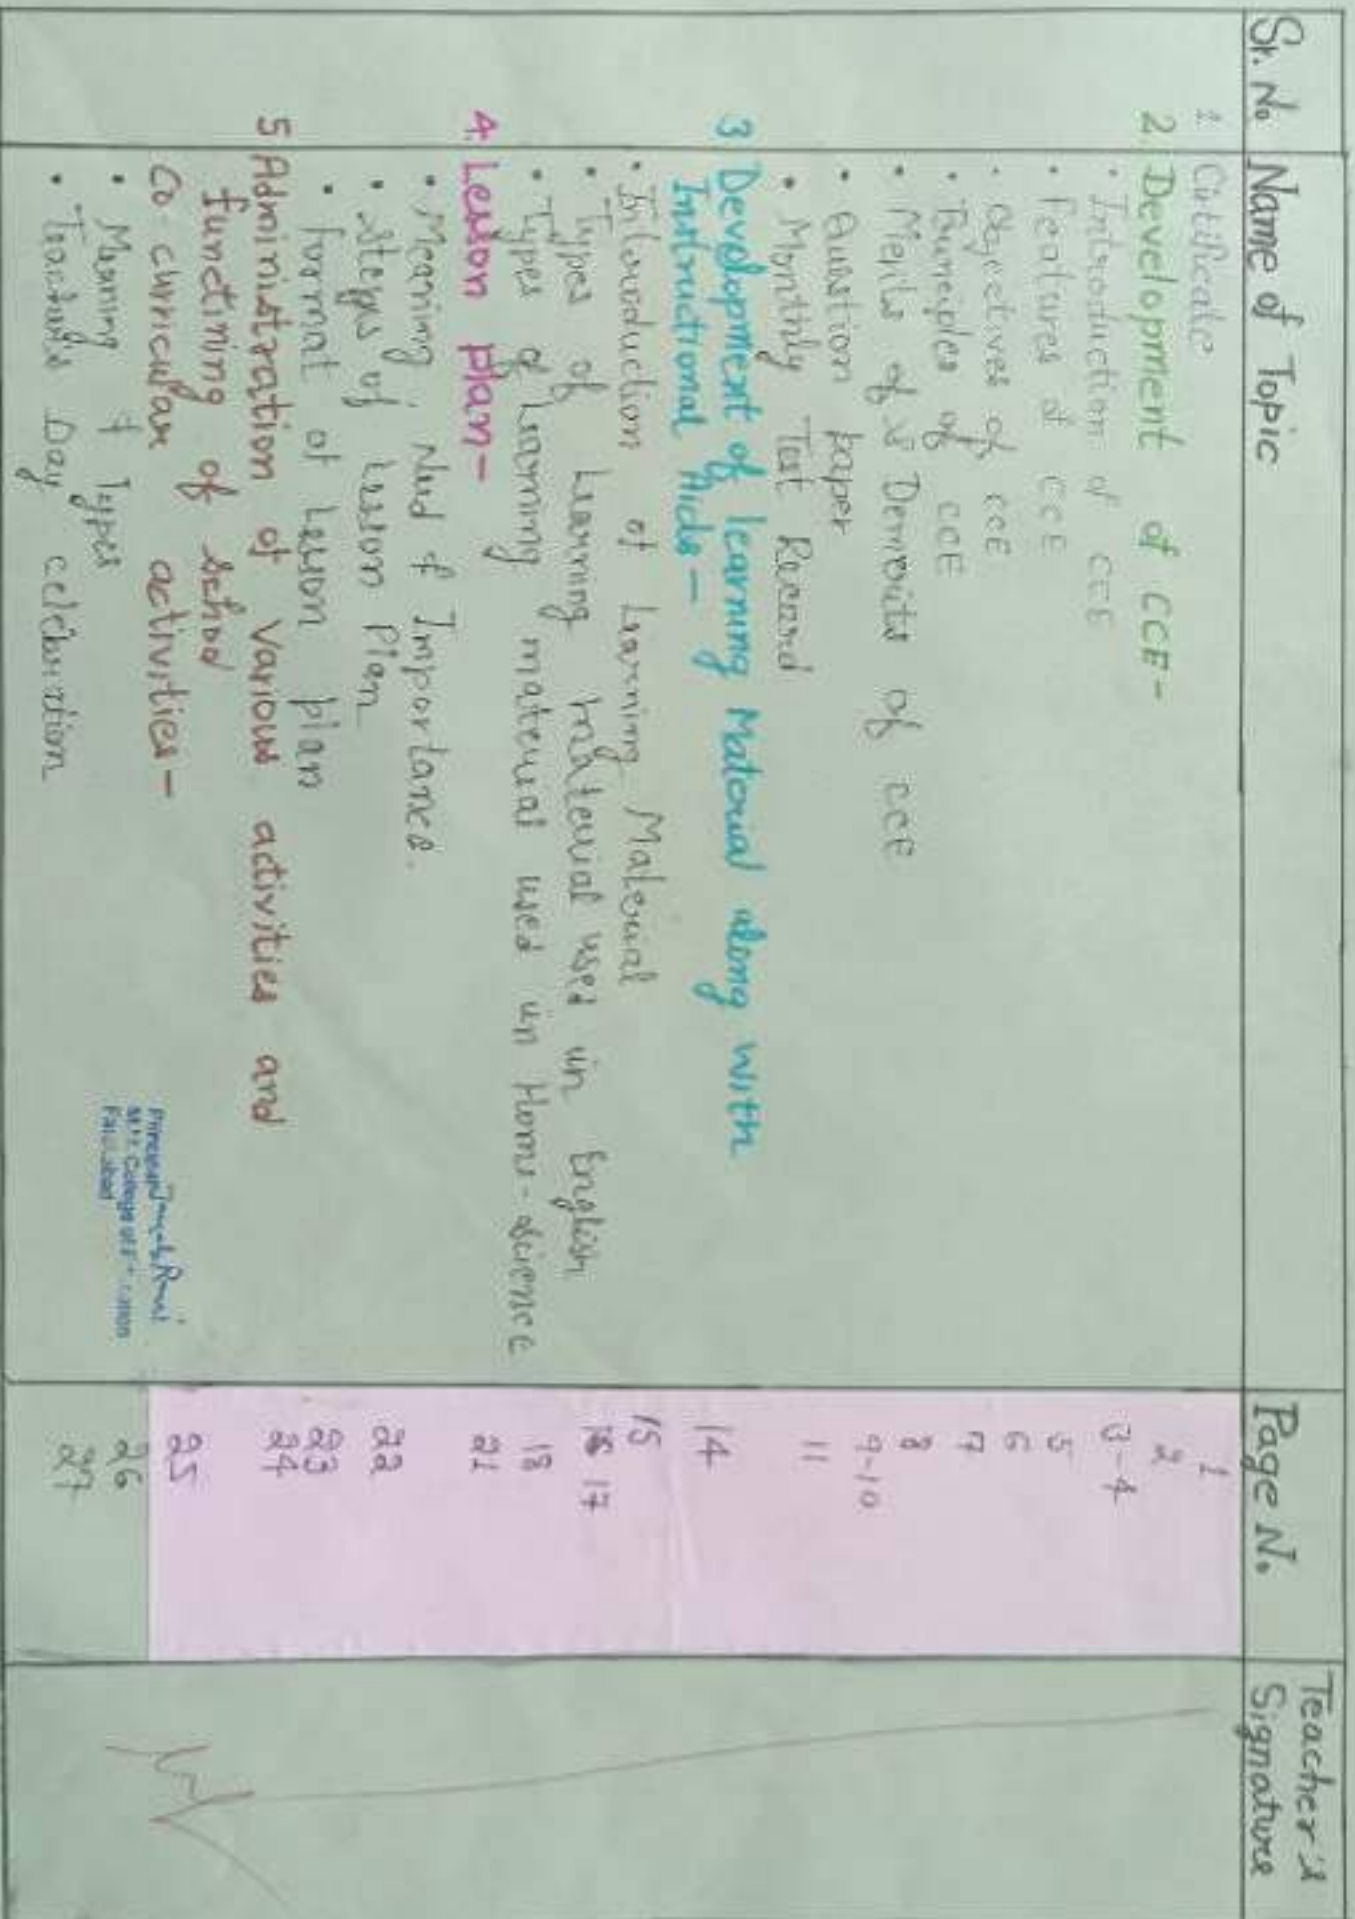 Sr. No Name of Topic Page No. Teacher's Signature
1. Certificate 1
2. Development of CCE- 2
• Introduction of CCE 3-4
• Features of CCE 5
• Objectives of CCE 6
• Principles of CCE 7
• Merits of & Demerits of CCE 8
• Question paper 9-10
• Monthly Test Record 11
3 Development of learning Material along with 14
Instructional Aids-
• Introduction of Learning Material 15
• Types of Learning material used in English 17
• Types of Learning material used in Home-science 18
4. Lesson plan- 21
• Meaning, Need & Importance. 22
• Steps of Lesson Plan 23
• Format of Lesson plan 24
5 Administration of various activities and
functining of school
Co curricular activities- 25
• Meaning & Types 26
• Teacher's Day celebration 27
Principal
College of